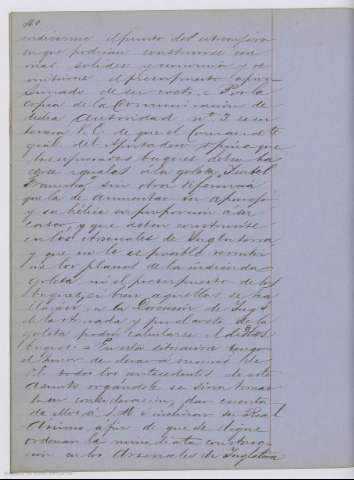 40
indicarme el punto del extranjero
en que podrian construirse con
mas solidez y economía y re-
mitirme el presupuesto aproc-
simado de su costo. = Por la
copia de la Comunicacion de
dicha Autoridad nº 7 se en-
terará V.E. de que el Comandte
gral del Apostadero opina que
los espresados buques deben ha-
cerse iguales á la goleta "Isabel
Francisca" sin otra diferencia
que la de aumentar su aparejo
y su hélice en proporcion á su
casco, y que deben construirse
en los Arsenales de Inglaterra
y que no le es posible remitir
ni los planos de la indicada
goleta ni el presupuesto de los
buques, si bien aquellos se ha-
llarán en la Direccion de Ings
de la Armada y por el costo de la
goleta podrá calcularse el de los
buques = En esta situacion tengo
el honor de elevar á manos de
V.E. todos los antecedentes de este
asunto rogándole se sirva tomar-
los en consideracion, dar cuenta
de ellos á S.M. é inclinar su Real
Animo a fin de que se digne
ordenar la inmediata construc-
cion en los Arsenales de Inglaterra